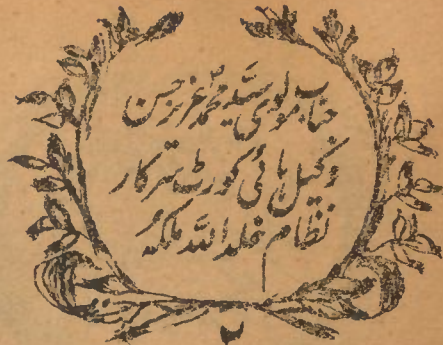 جناب مولوی سید محمد عزیز حسن
وکیل ہائی کورٹ سرکار
نظام خلد اللہ ملکہٗ
۲